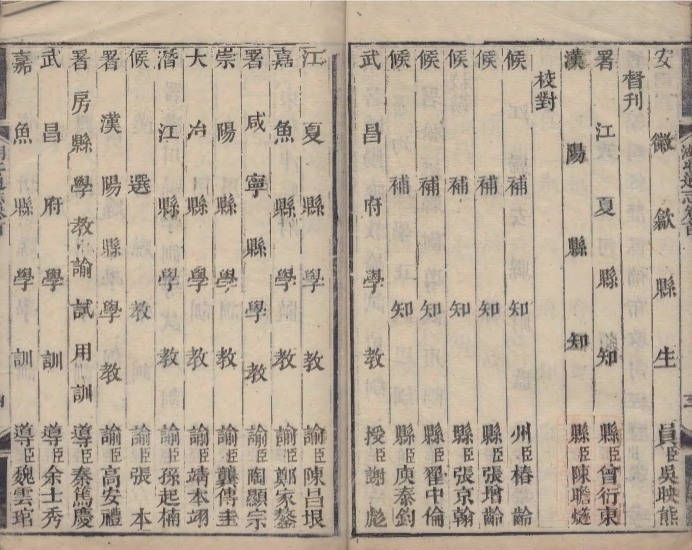 安徽歙縣生員臣吳映熊
督刊
署江夏縣知縣臣曾衍東
漢陽縣知縣臣陳瞻
校對
候補知州臣椿齡
候補知縣臣張增齡
候補知縣臣張京翰
候補知縣臣翟中倫
候補知縣臣庾泰鈞
武昌府學教授臣謝彪
江夏縣學教諭臣陳昌垠
嘉魚縣學教諭臣鄭家鏊
署咸寧縣學教諭臣陶顯宗
崇陽縣學教諭臣龔傳圭
大冶縣學教諭臣靖本翊
潛江縣學教諭臣孫起楠
候選教諭臣張本
署漢陽縣學教諭臣高安禮
署房縣學教諭試用訓導臣秦篤慶
武昌府學訓導臣余士秀
嘉魚縣學訓導臣魏雲琯